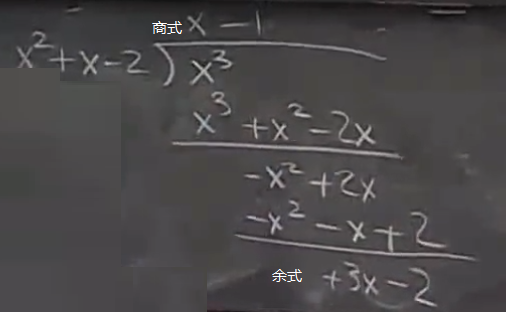 商式 x - 1
x² + x - 2 ) x³
x³ + x² - 2x
-x² + 2x
-x² - x + 2
余式 +3x - 2